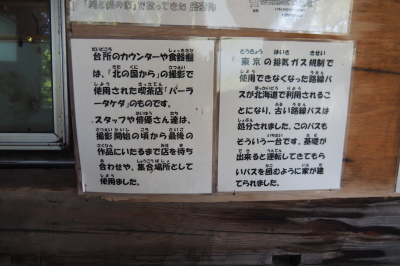 台所のカウンターや食器棚
は、「北の国から」の撮影で
使用された喫茶店「パーラ
ータケダ」のものです。
スタッフや俳優さん達は、
撮影開始の頃から最後の
作品にいたるまで店を待ち
合わせや、集合場所として
使用しました。
東京の排気ガス規制で
使用できなくなった路線バ
スが北海道で利用されるこ
とになり、古い路線バスは
処分されました。このバスも
そういう一台です。基礎が
出来ると運転してきてもら
いバスを囲むように家が建
てられました。